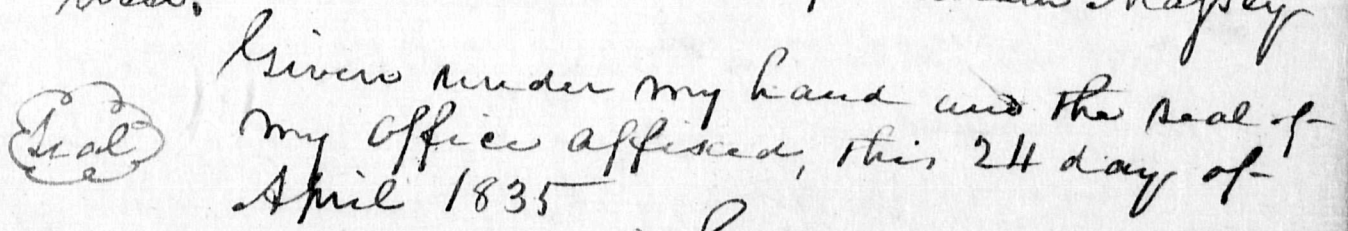 Given under my hand and the seal of
Seal
my office affixed, this 24 day of
April 1835